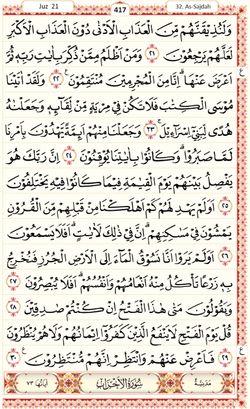 Juz 21
417
32. As-Sajdah
وَلَنُذِيقَنَّهُمْ مِّنَ الْعَذَابِ الْاَدْنٰى دُوْنَ الْعَذَابِ الْاَكْبَرِ
لَعَلَّهُمْ يَرْجِعُوْنَ ٢١ وَمَنْ اَظْلَمُ مِمَّنْ ذُكِّرَ بِاٰيٰتِ رَبِّهٖ ثُمَّ
اَعْرَضَ عَنْهَا اِنَّا مِنَ الْمُجْرِمِيْنَ مُنْتَقِمُوْنَ ٢٢ وَلَقَدْ اٰتَيْنَا
مُوْسَى الْكِتٰبَ فَلَا تَكُنْ فِيْ مِرْيَةٍ مِّنْ لِّقَاۤئِهٖ وَجَعَلْنٰهُ
هُدًى لِّبَنِيْۤ اِسْرَاۤءِيْلَ ٢٣ وَجَعَلْنَا مِنْهُمْ اَىِٕمَّةً يَّهْدُوْنَ بِاَمْرِنَا
لَمَّا صَبَرُوْا وَكَانُوْا بِاٰيٰتِنَا يُوْقِنُوْنَ ٢٤ اِنَّ رَبَّكَ هُوَ
يَفْصِلُ بَيْنَهُمْ يَوْمَ الْقِيٰمَةِ فِيْمَا كَانُوْا فِيْهِ يَخْتَلِفُوْنَ
٢٥ اَوَلَمْ يَهْدِ لَهُمْ كَمْ اَهْلَكْنَا مِنْ قَبْلِهِمْ مِّنَ الْقُرُوْنِ
يَمْشُوْنَ فِيْ مَسٰكِنِهِمْ اِنَّ فِيْ ذٰلِكَ لَاٰيٰتٍ اَفَلَا يَسْمَعُوْنَ
٢٦ اَوَلَمْ يَرَوْا اَنَّا نَسُوْقُ الْمَاۤءَ اِلَى الْاَرْضِ الْجُرُزِ فَنُخْرِجُ
بِهٖ زَرْعًا تَأْكُلُ مِنْهُ اَنْعَامُهُمْ وَاَنْفُسُهُمْ اَفَلَا يُبْصِرُوْنَ ٢٧
وَيَقُوْلُوْنَ مَتٰى هٰذَا الْفَتْحُ اِنْ كُنْتُمْ صٰدِقِيْنَ ٢٨
قُلْ يَوْمَ الْفَتْحِ لَا يَنْفَعُ الَّذِيْنَ كَفَرُوْۤا اِيْمَانُهُمْ وَلَا هُمْ يُنْظَرُوْنَ
٢٩ فَاَعْرِضْ عَنْهُمْ وَانْتَظِرْ اِنَّهُمْ مُّنْتَظِرُوْنَ ٣٠
مَدَنِيَّة سُوْرَةُ الْاَحْزَاب اٰيَاتُهَا ٧٣